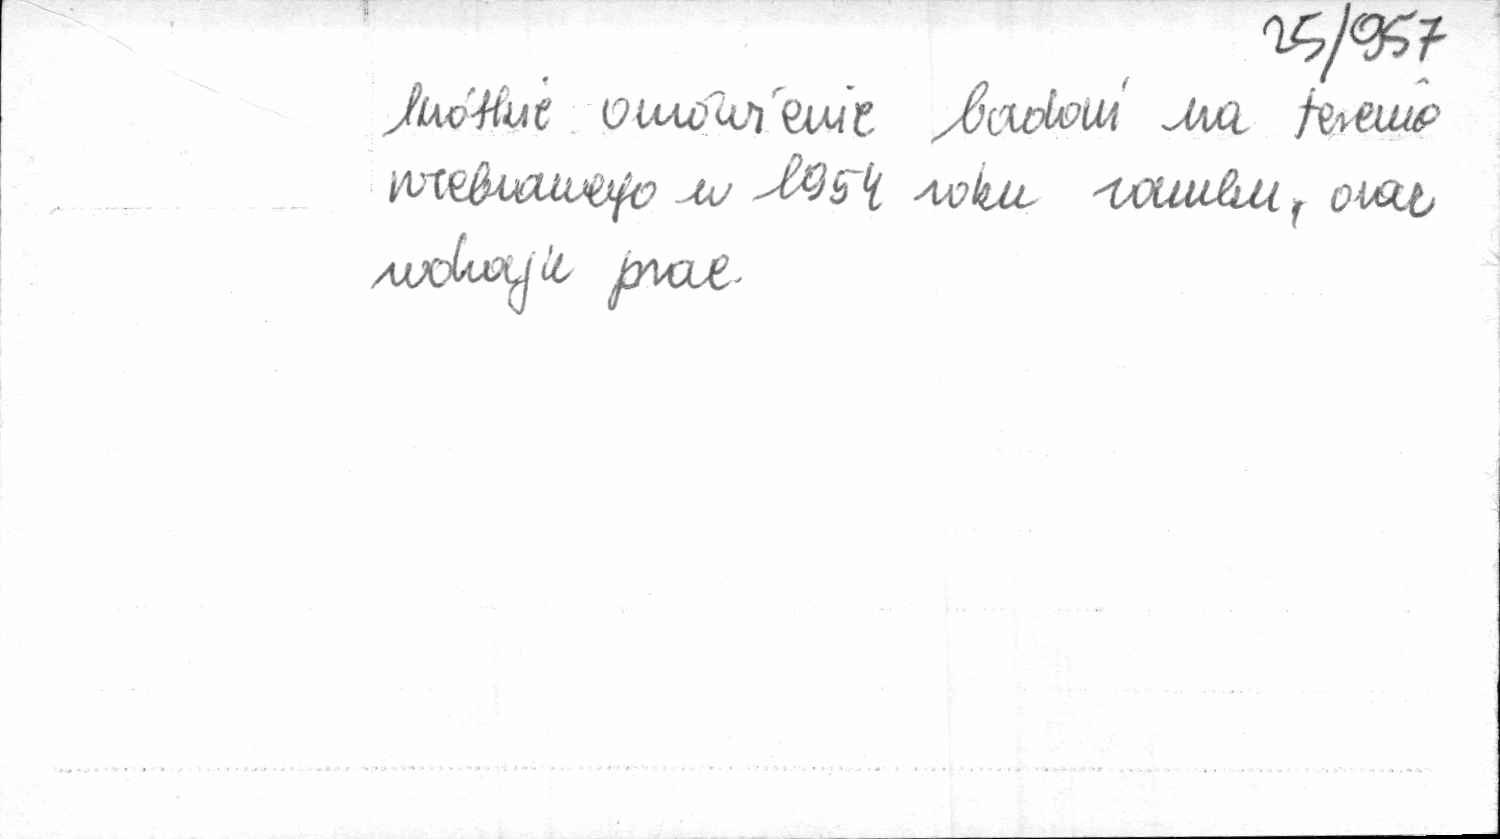 25/957
krótkie omówienie badań na terenie
w 1954 roku zamku, oraz
prac.